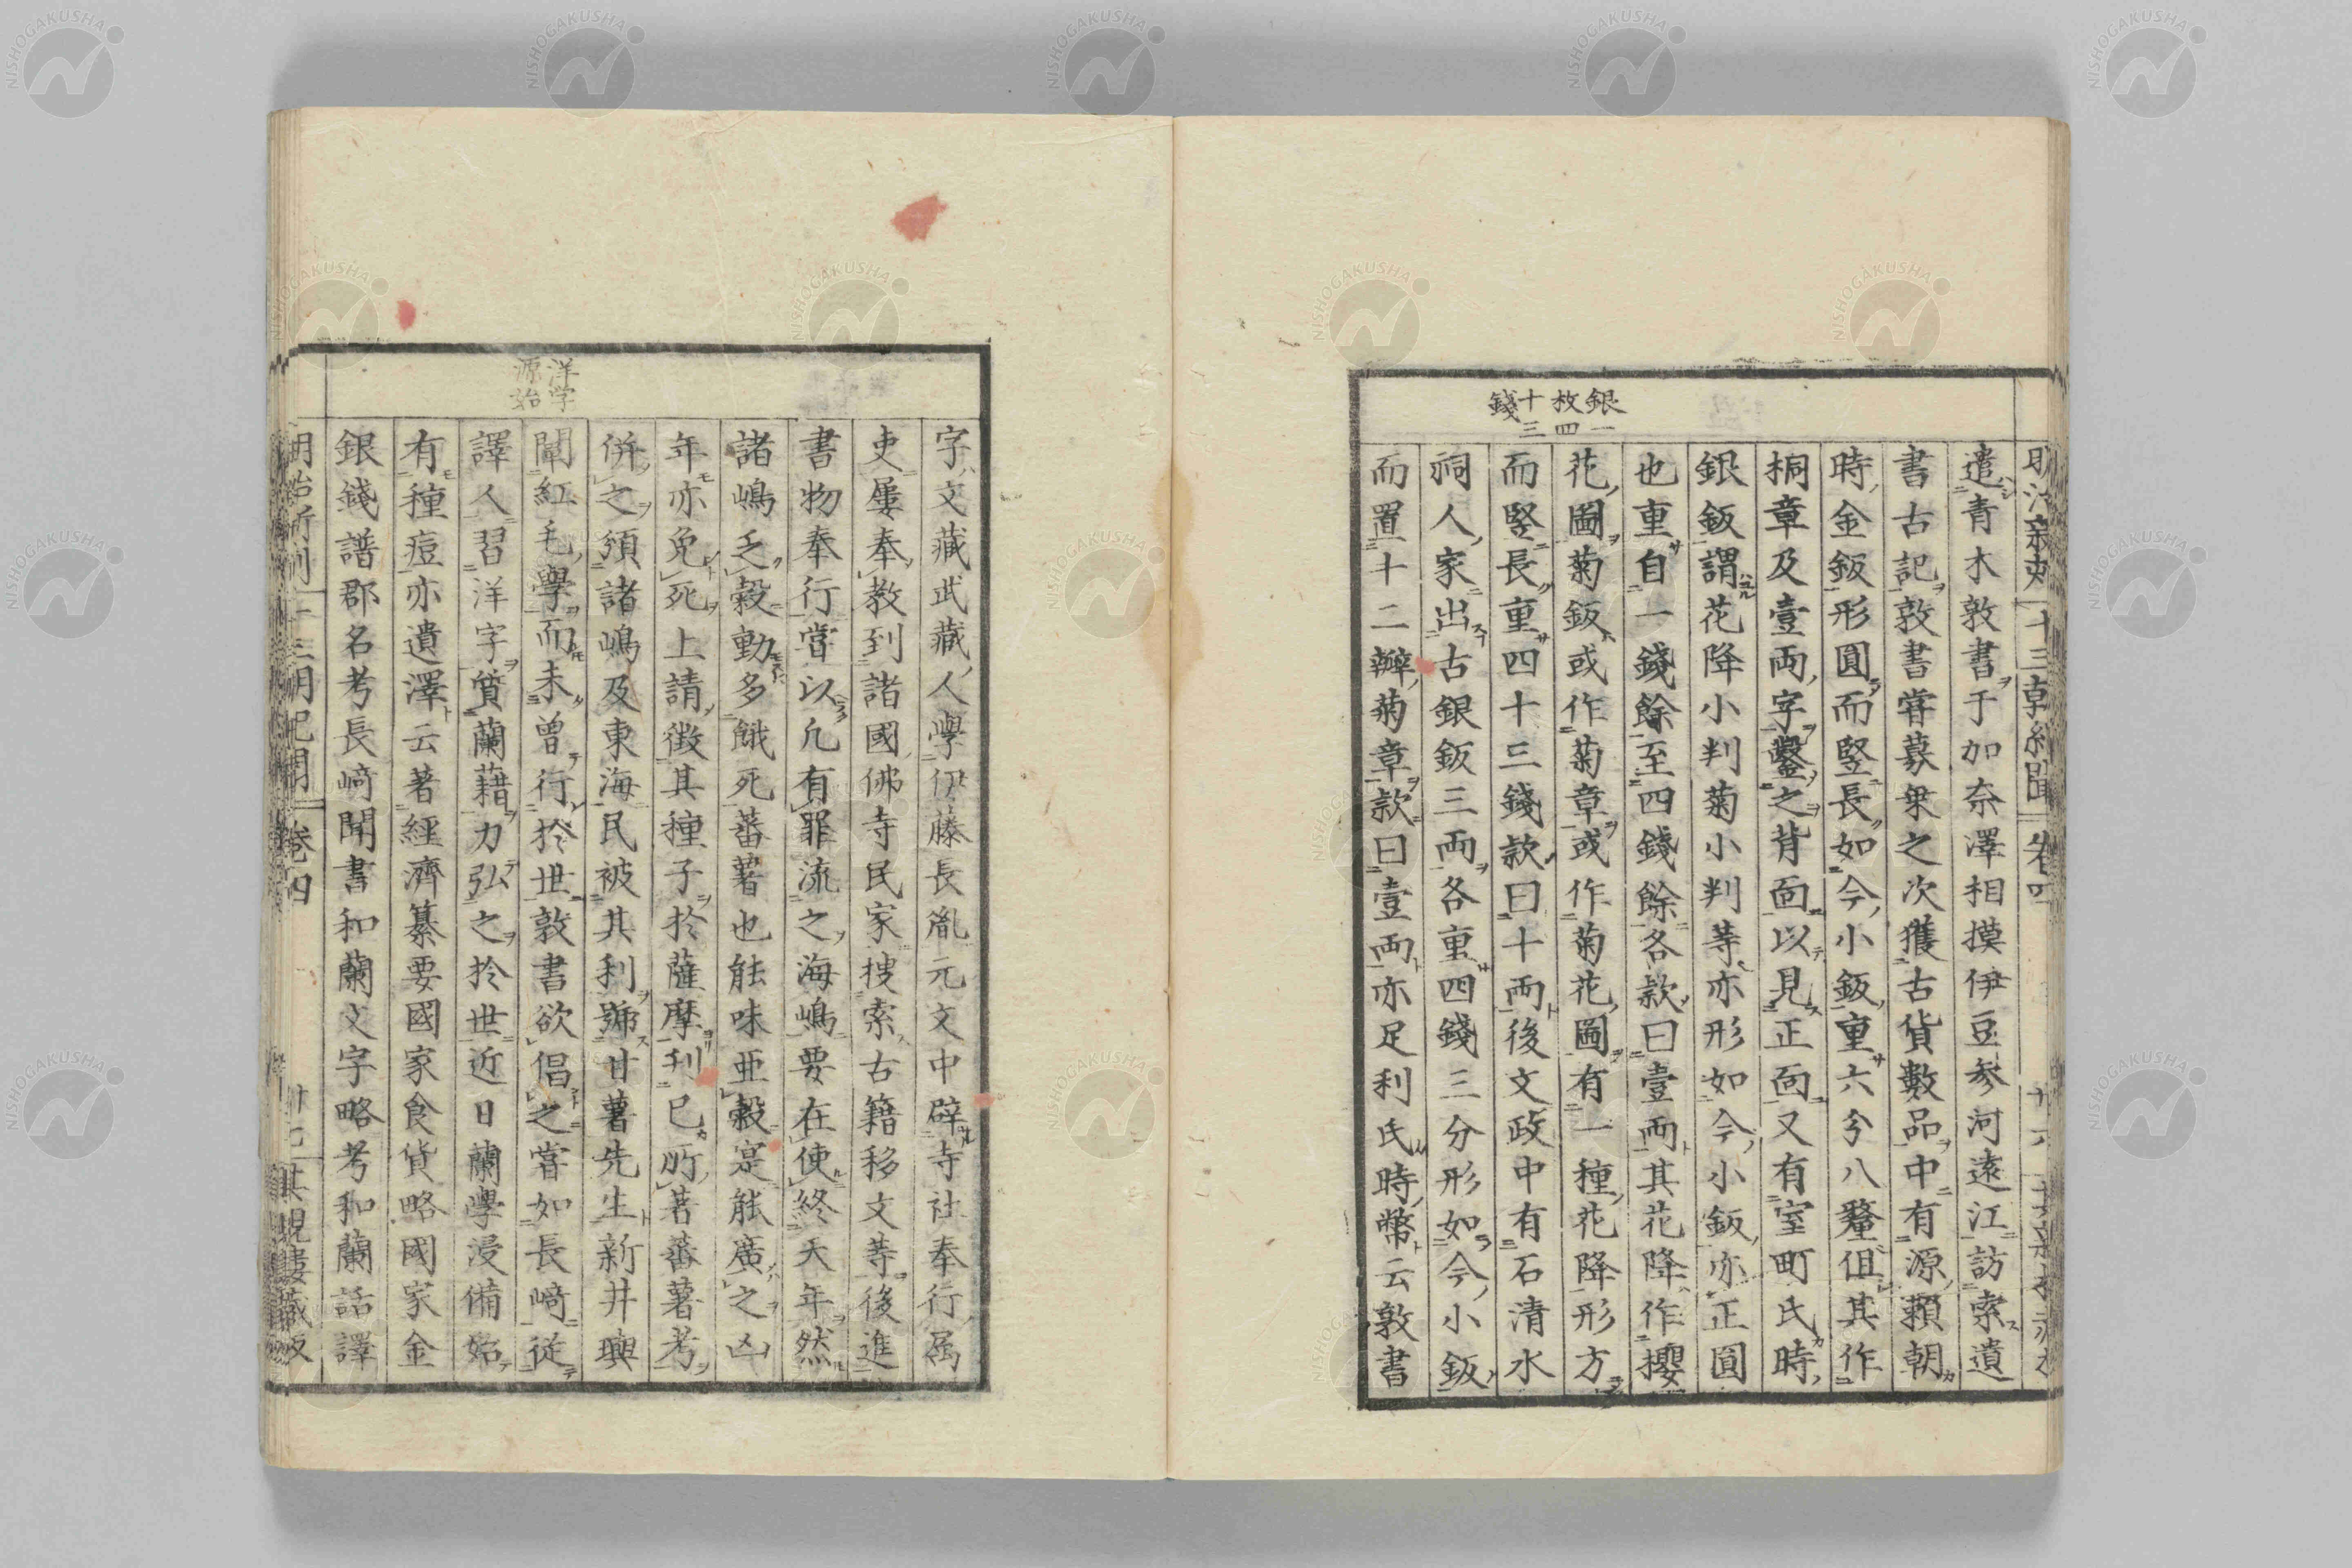 明治新刻 十三朝紀聞 卷四 廿六
遣青木敦書于加奈澤相摸伊豆參河遠江訪索遺
書古記敦書嘗募衆之次獲古貨數品中有源賴朝
時金鈑形圓而竪長如今小鈑重六分八釐但其作
桐章及壹両字鑿之背面以見正面又有室町氏時
銀鈑謂花降小判菊小判等亦形如今小鈑亦正圓
也重自一錢餘至四錢餘各款曰壹両其花降作櫻
花圖菊鈑或作菊章或作菊花圖有一種花降形方
而竪長重四十三錢款曰十両後文政中有石清水
祠人家出古銀鈑三両各重四錢三分形如今小鈑
而置十二瓣菊章款曰壹両亦足利氏時幣云敦書
銀一
枚四
十三
錢
字文藏武藏人學伊藤長胤元文中辟寺社奉行属
吏屢奉教到諸國佛寺民家捜索古籍移文等後進
書物奉行嘗以凡有罪流之海嶋要在使終天年然
諸嶋乏穀動多餓死蕃薯也能味亜穀寔能廣之凶
年亦免死上請徴其種子於薩摩刊已所著蕃薯考
併之頒諸嶋及東海民被其利號甘薯先生新井興
闡紅毛學而未曾行於世敦書欲倡之嘗如長﨑從
譯人習洋字質蘭藉力弘之於世近日蘭學浸備始
有種痘亦遺澤云著經濟纂要國家食貨略國家金
銀錢譜郡名考長﨑聞書和蘭文字略考和蘭話譯
洋字
源始
明治新刻 十三朝紀聞 卷四 廿七 其蜆樓藏版
NISHOGAKUSHA